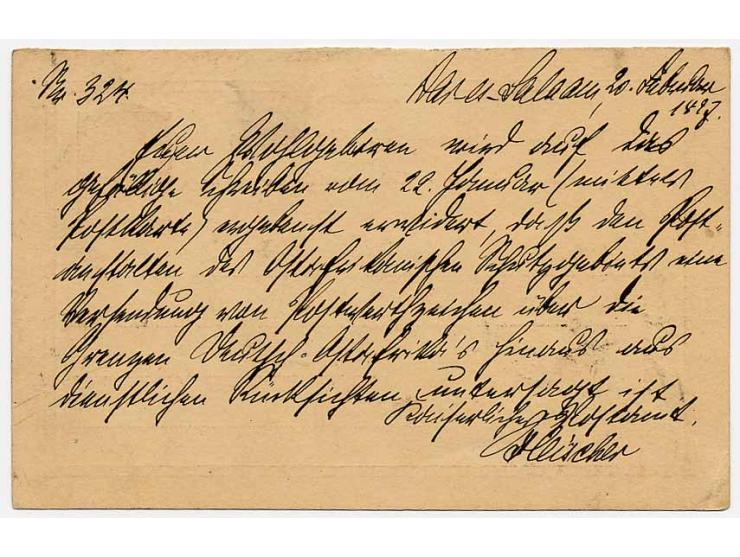 Nr. 324.
Dar-es-Salaam, 20. Februar
1897.
Euer Wohlgeboren wird auf das
gefällige Schreiben vom 22. Januar (mittels
Postkarte) ergebenst erwidert, daß den Post-
anstalten des Ostafrikanischen Schutzgebiets eine
Versendung von Postwerthzeichen über die
Grenzen Deutsch-Ostafrika's hinaus aus
dienstlichen Rücksichten untersagt ist
Kaiserliches Postamt.